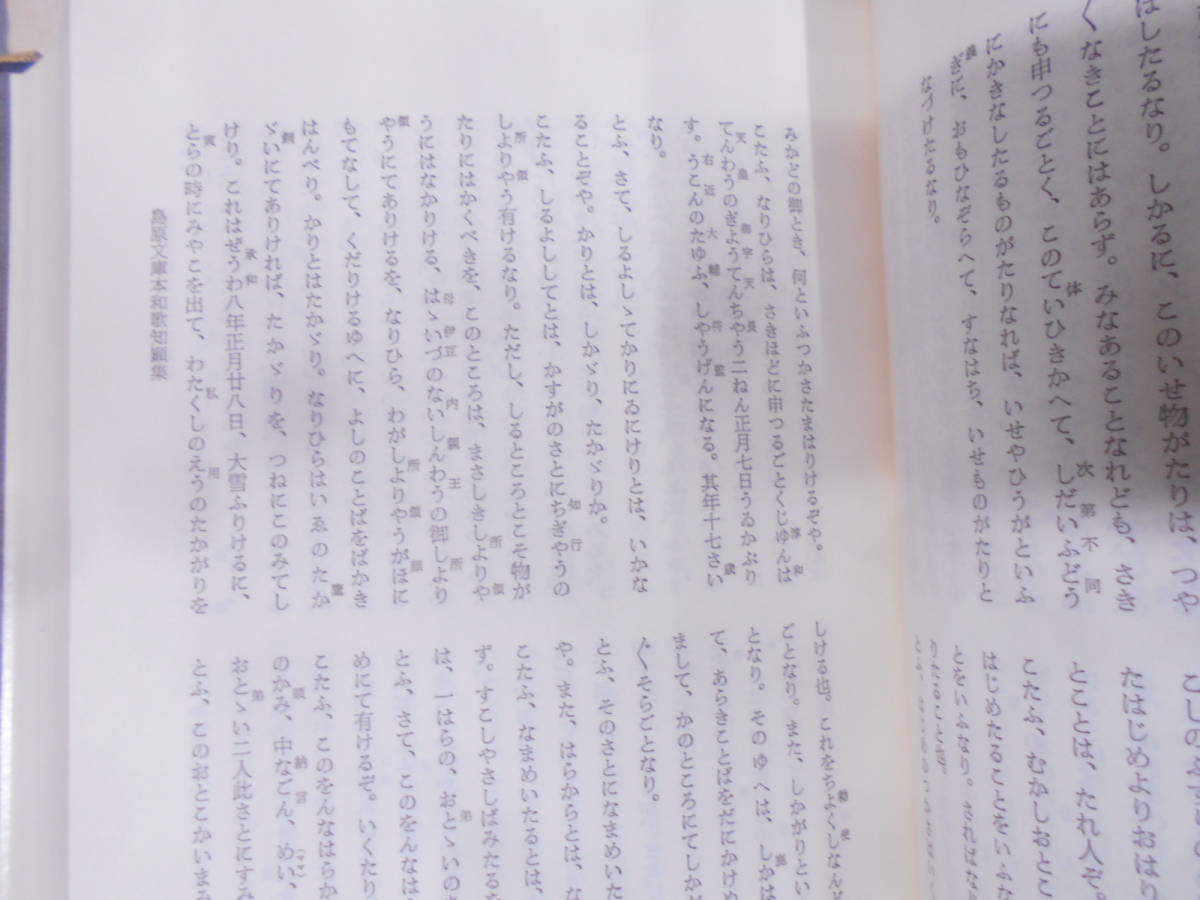 はしたるなり。しかるに、このいせ物がたりは、つや
くなきことにはあらず。みなあることなれども、さき
にも申つるごとく、このていひきかへて、しだいふどう
体
次第不同
にかきなしたるものがたりなれば、いせやひうがといふ
ぎに、おもひなぞらへて、すなはち、いせものがたりと
なづけたるなり。
たはじめよりおはり
とことは、たれ人ぞ。
こたふ、むかしおとこ
はじめたることをいふた
とをいふなり。さればなん
みかどの御とき、何といふつかさたまはりけるぞや。
こたふ、なりひらは、さきほどに申つるごとくじゆんは
てんわうのぎようてんちやう二ねん正月七日うゐかぶり
天皇
御宇天長
す。うこんのたゆふ、しやうげんになる。其年十七さい
右近大輔
将監
歳
なり。
とふ、さて、しるよしゝてかりにゐにけりとは、いかな
ることぞや。かりとは、しかゞり、たかゞりか。
こたふ、しるよししてとは、かすがのさとにちぎやうの
知行
しよりやう有けるなり。ただし、しるところとこそ物が
所領
たりにはかくべきを、このところは、まさしきしよりや
所領
うにはなかりける、はゝいづのないしんわうの御しより
母伊豆内親王
所
やうにてありけるを、なりひら、わがしよりやうがほに
領
所領顔
もてなして、くだりけるゆへに、よしのことばをばかき
はんべり。かりとはたかゞり。なりひらはいゑのたか
鷹
ゞいにてありければ、たかゞりを、つねにこのみてし
飼
けり。これはぜうわ八年正月廿八日、大雪ふりけるに、
承和
とらの時にみやこを出て、わたくしのえうのたかがりを
寅
私
用
しける也。これをちよくしな
ことなり。また、しかがりとい
となり。そのゆくは、しかは
て、あらきことばをだにかけ
まして、かのところにてしか
ぐくそらごとなり。
とふ、そのさとになまめいた
や。また、はらからとは、た
こたふ、なまめいたるとは、
す。すこしやさしばみたる
は、一はらの、おとゝいの
弟
とふ、さて、このをんなは
めにて有けるぞ。いくたり
こたふ、このをんなはらか
のかみ、中なごん、めい、
納言
おとゝい二人此さとにす
弟
とふ、このおとこかいま
島原文庫本和歌知顕集